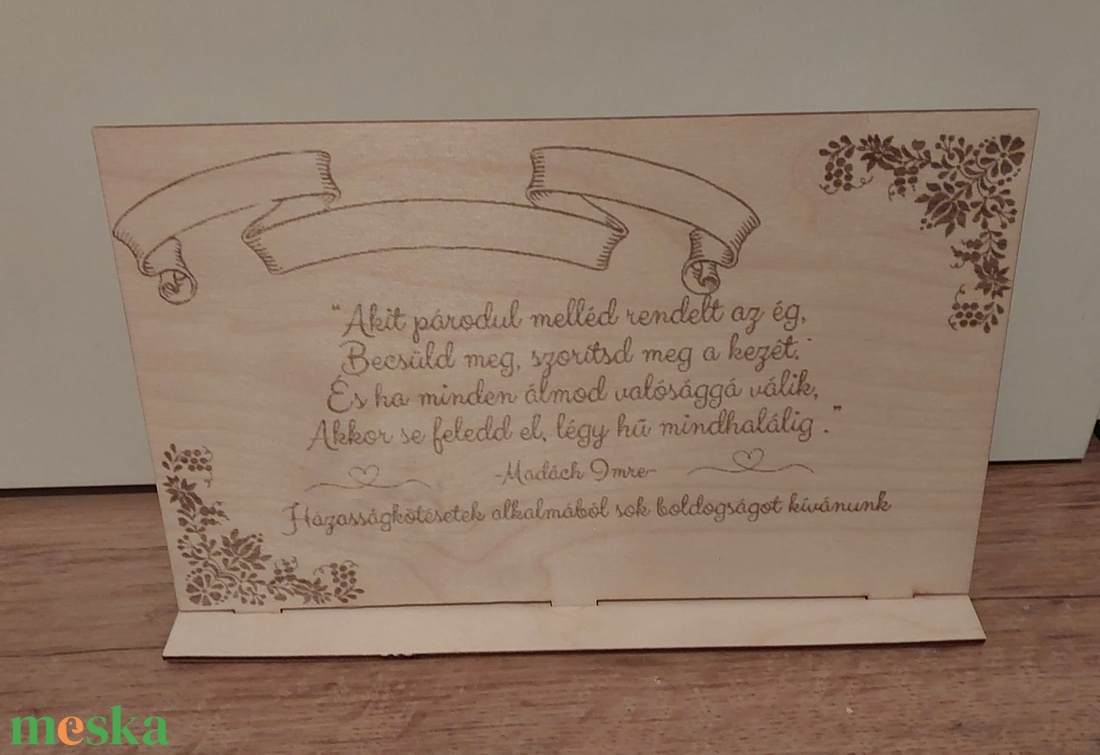 “Akit párodul melléd rendelt az ég,
Becsüld meg, szorítsd meg a kezét.
És ha minden álmod valósággá válik,
Akkor se feledd el, légy hű mindhalálig.”
-Madách Imre-
Házasságkötésetek alkalmából sok boldogságot kívánunk
meska